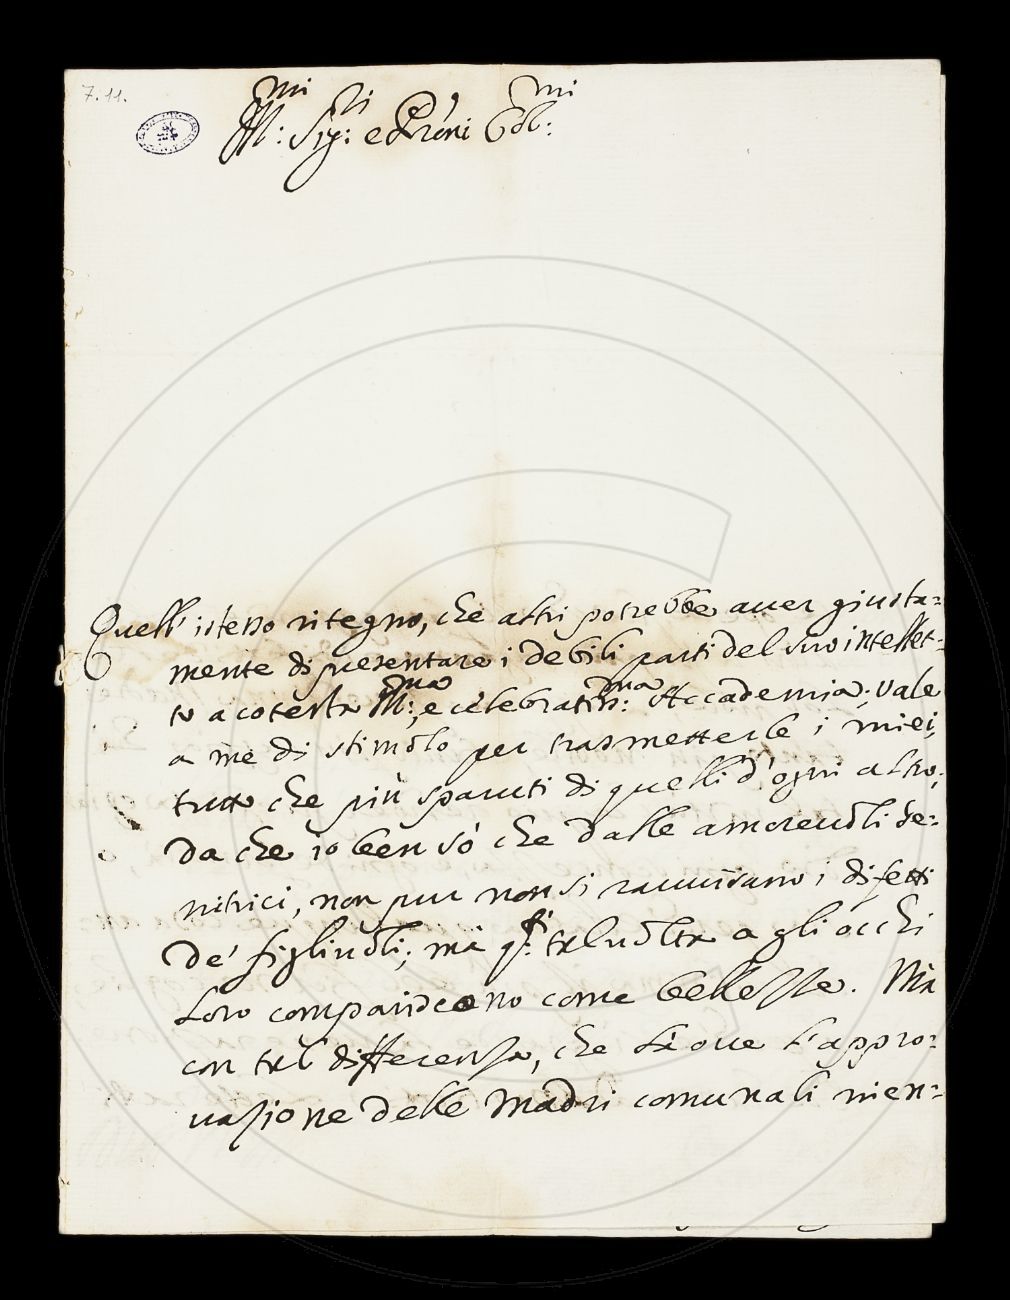 7.11.
Ill:mi Sig:ri e Pròni Col:mi
Quell' istesso ritegno, che altri potrebbe auer giusta=
mente di presentare i debili parti del suo intellet=
to a cotesta Ill:ma, e celebratiss:ma Accademia; vale
a me di stimolo per trasmetterle i miei,
tutto che più sparuti di quelli d'ogni altro;
Da che io ben sò che dalle amoreuoli Ge=
nitrici, non pur non si rauuisano i difetti
de' figliuoli; mà tal uolta a gli occhi
loro compariscono come bellezze. Mà
con tal differenza, che là oue l'appro=
uazione delle Madri comunali nien=